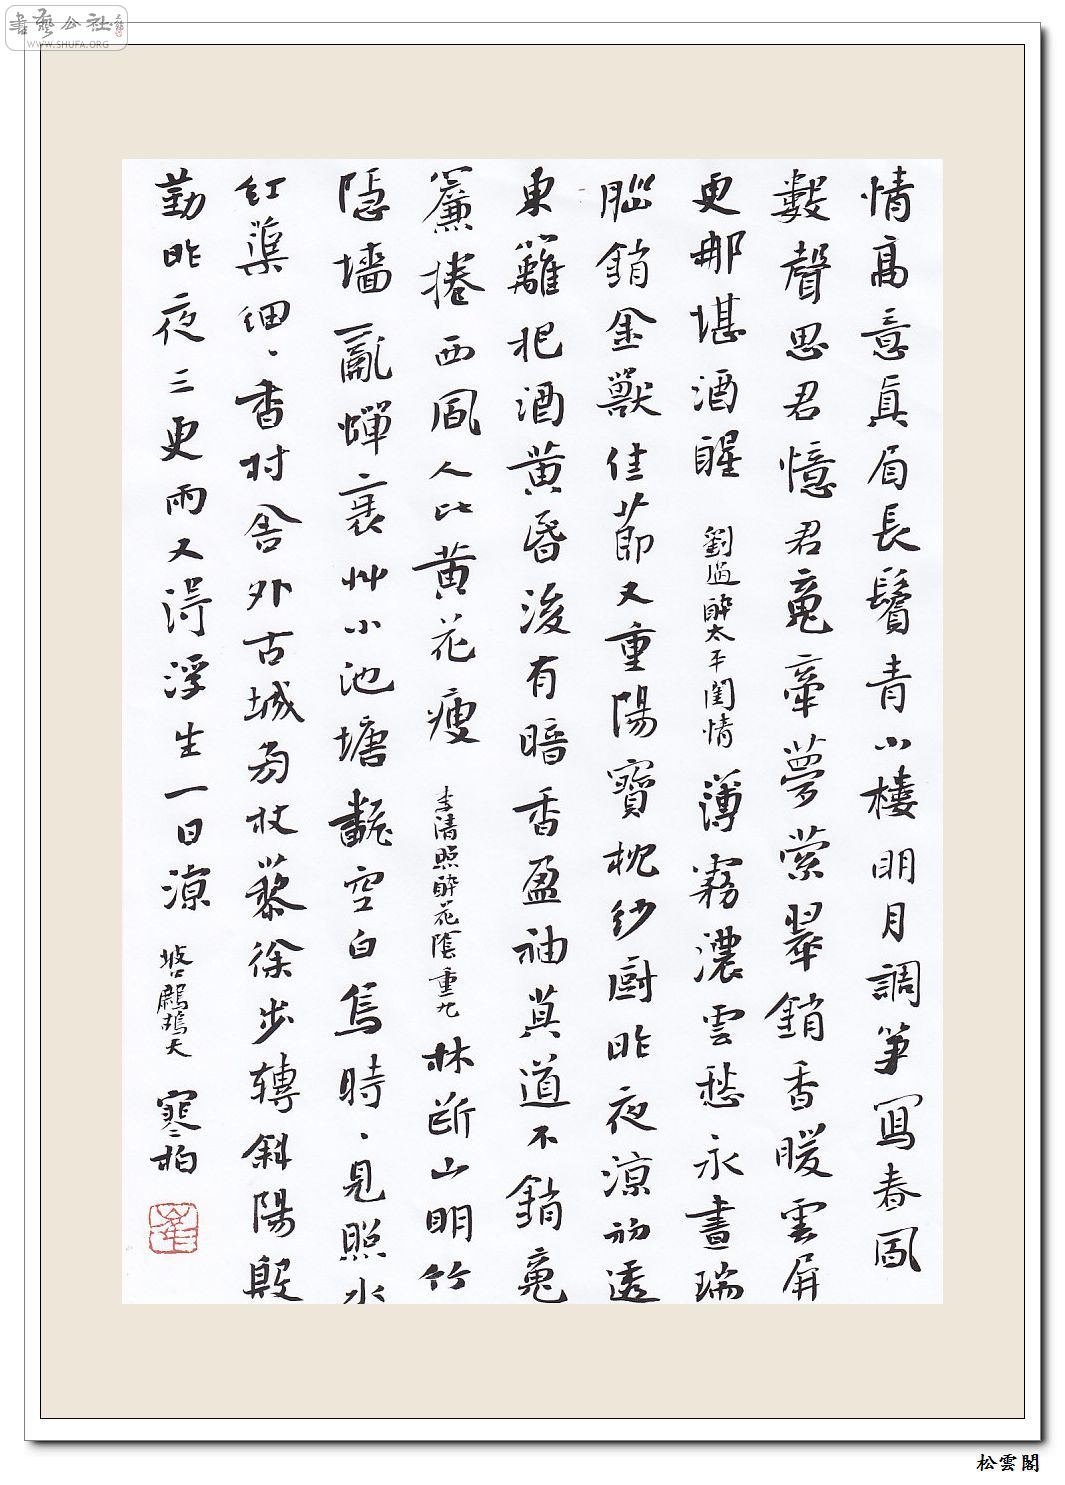 書藝公社
WWW.SHUFA.ORG
情高意真眉長鬢青小樓明月調箏寫春風
數聲思君憶君䰟牽夢縈翠銷香暖雲屏
更那堪酒醒 劉過醉太平閨情 薄霧濃雲愁永晝瑞
腦銷金獸佳莭又重陽寶枕紗廚昨夜涼初透
東籬把酒黃昏後有暗香盈袖莫道不銷䰟
簾捲西風人比黃花瘦 李清照醉花陰重九 林斷山明竹
隱墻亂蟬衰艸小池塘翻空白鳥時、見照水
紅蕖細、香村舍外古城旁杖藜徐步轉斜陽殷
勤昨夜三更雨又淂浮生一日涼 坡鷓鴣天 寒柏
松雲閣